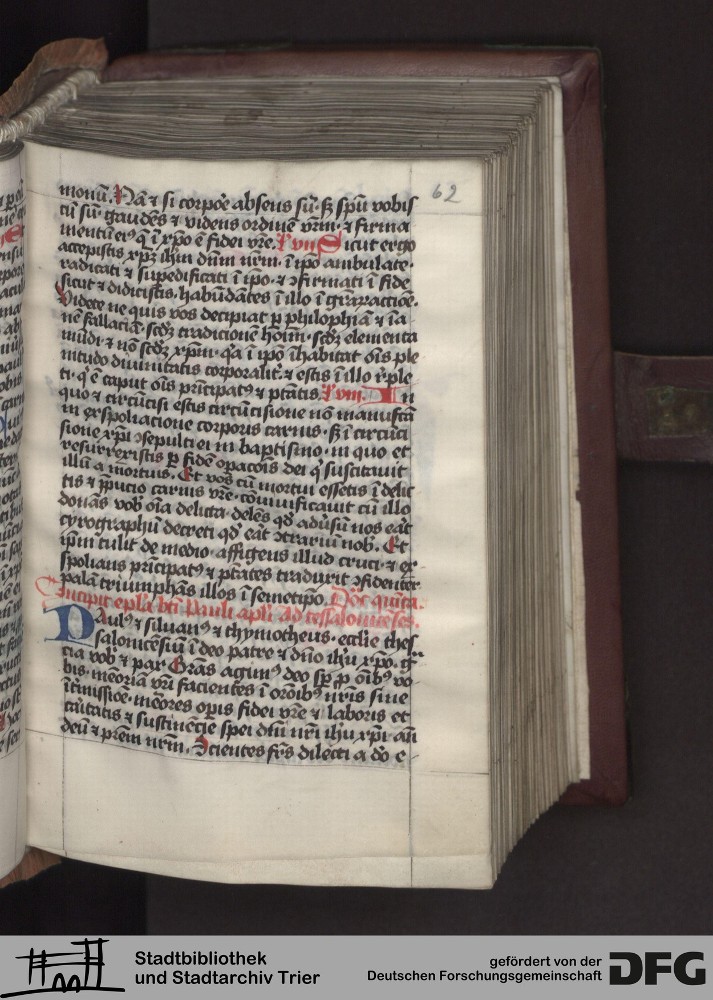 62
monū. Nā & si corpoē absens sū. sȝ spū vobis
cū sū. gaudēs & videns ordinē vrm̄. & firma
mentū eiꝰ q̄ ī xp̄o ē fidei vrē. Sicut ergo
accepistis xp̄ȝ ihm̄ dnm̄ nrm̄. ī ip̄o ambulate.
radicati & supedificati ī ip̄o. & ɔfirmati ī fide
sicut & didicistis. habūdātes ī illo ī gr̄aractiōē.
Videte ne quis vos decipiat p philophiā & īa
nē fallaciā. scdȝ tradicionē hoīm. scdȝ elementa
mūdi. & nō scdȝ xp̄m. qꝛa ī ip̄o īhabitat oīs ple
nitudo diuinitatis corporalit̄. & estis ī illo rēple
ti. q̄ ē caput oīs prīcipatꝰ & ptātis. viii. In
quo & circūcisi estis circūcisione nō manufctā
in exspoliacione corporis carnis. sȝ ī circūci
sione xp̄i ɔsepulti ei in baptismo. in quo et
resurrexistis p fidē opac̄ois dei q̄ suscitauit
illū a mortuis. Et vos cū mortui essetis ī delic
tis & p̄pucio carnis vrē. conviuificauit cū illo
donās vob̄ oīa delicta. delēs qd̄ adūsū nos eāt
cyrographū decreti qd̄ eāt ɔtrariū nob̄. Et
ip̄m tulit de medio. affigens illud cruci. & ex
spolians prīcipatꝰ & ptātes traduxit ɔfidenter
palā triumphās illos ī semetip̄o.
Incipit epl̄a bt̄i Pauli apl̄i ad tessalonicēses.
Paulꝰ & siluanꝰ & thymotheus. ecclīe thes
salonicēsiū ī deo patre & dn̄o ihū xp̄o. gr̄
cia vob̄ & pax. Grās agimꝰ deo sp̄ p oīb̄ vo
bis. meoriā vrī facientes ī orōib̄ nrīs sine
ītmissioē. mēores opīs fidei vrē & laboris et
cāitatis & sustinēcie spei dn̄i nrī ihū xp̄i. an̄
deū & prēm nrm̄. Scientes frēs dilecti a dō e
Stadtbibliothek
und Stadtarchiv Trier
gefördert von der
Deutschen Forschungsgemeinschaft
DFG